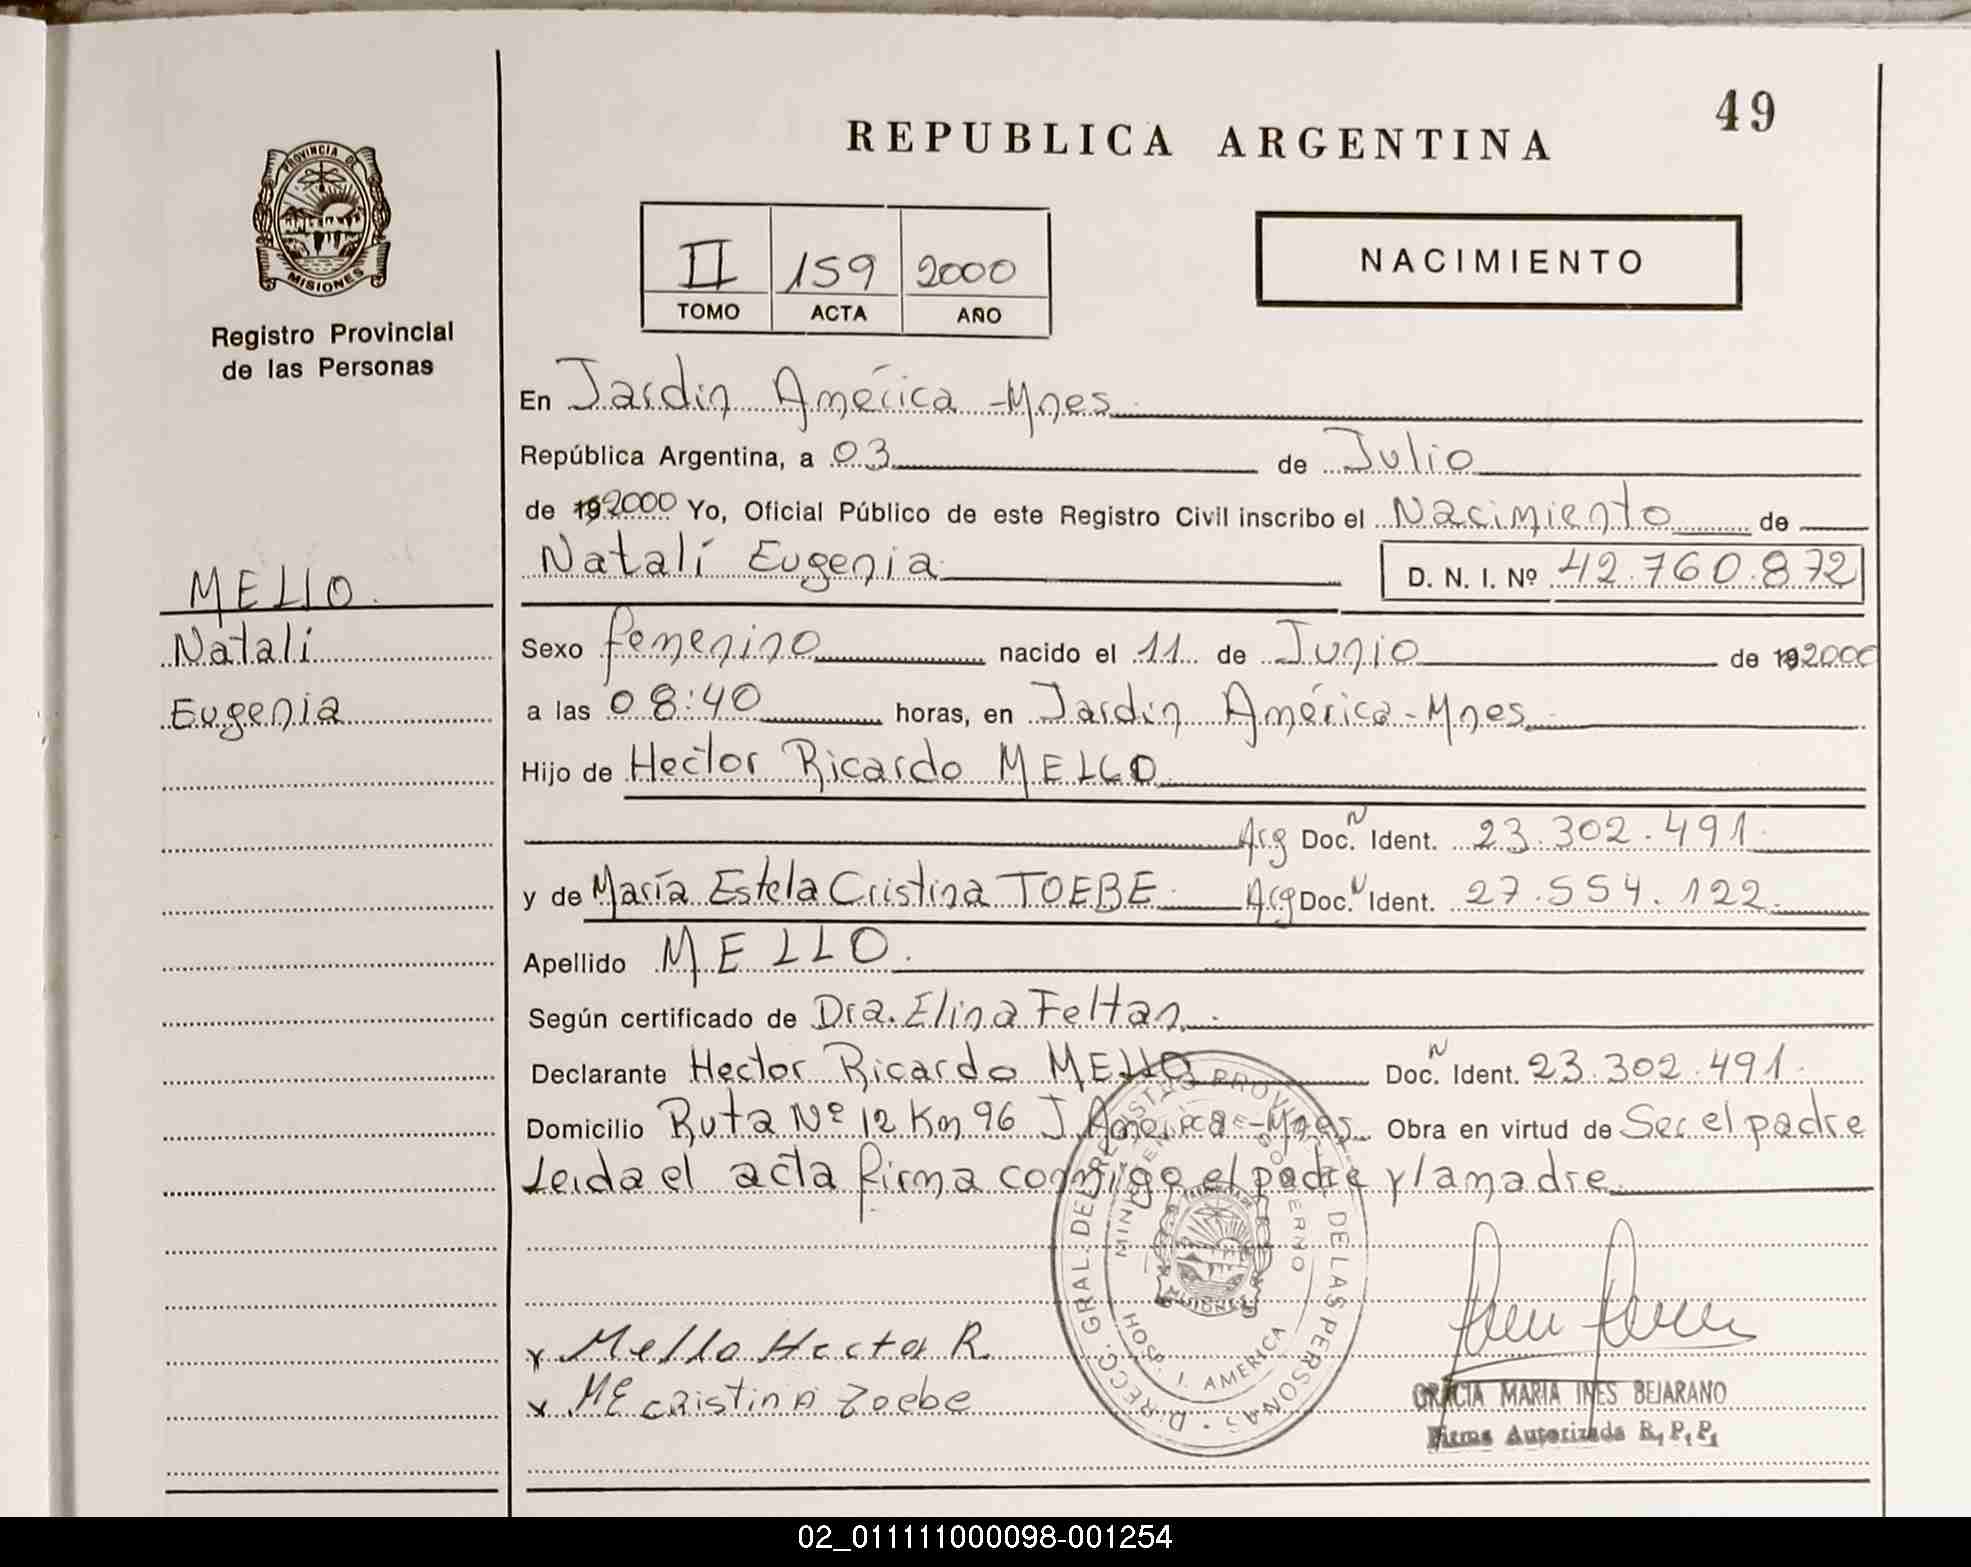 49
REPUBLICA ARGENTINA
PROVINCIA DE
MISIONES
Registro Provincial
de las Personas
II 159 2000
TOMO ACTA AÑO
NACIMIENTO
En Jardin América - Mnes
República Argentina, a 03 de Julio
de 192000 Yo, Oficial Público de este Registro Civil inscribo el Nacimiento de
Natalí Eugenia D. N. I. Nº 42.760.872
MELLO.
Natalí
Eugenia
Sexo femenino nacido el 11 de Junio de 192000
a las 08:40 horas, en Jardin América - Mnes
Hijo de Hector Ricardo MELLO
Arg Doc. N Ident. 23.302.491
y de María Estela Cristina TOEBE Arg Doc. N Ident. 27.554.122
Apellido MELLO.
Según certificado de Dra. Elina Feltan
Declarante Hector Ricardo MELLO Doc. N Ident. 23.302.491
Domicilio Ruta Nº 12 Km 96 J. América - Mnes Obra en virtud de Ser el padre
Leida el acta firma conmigo el padre y la madre
D. RECC. GRAL. DEL REGISTRO PROVINCIAL DE LAS PERSONAS
MINISTERIO DE GOBIERNO
MISIONES
HOSP. J. AMERICA
x Mello Hector R
x Mª Cristina Toebe
GRACIA MARIA INES BEJARANO
Firma Autorizada R. P. P.
02_011111000098-001254